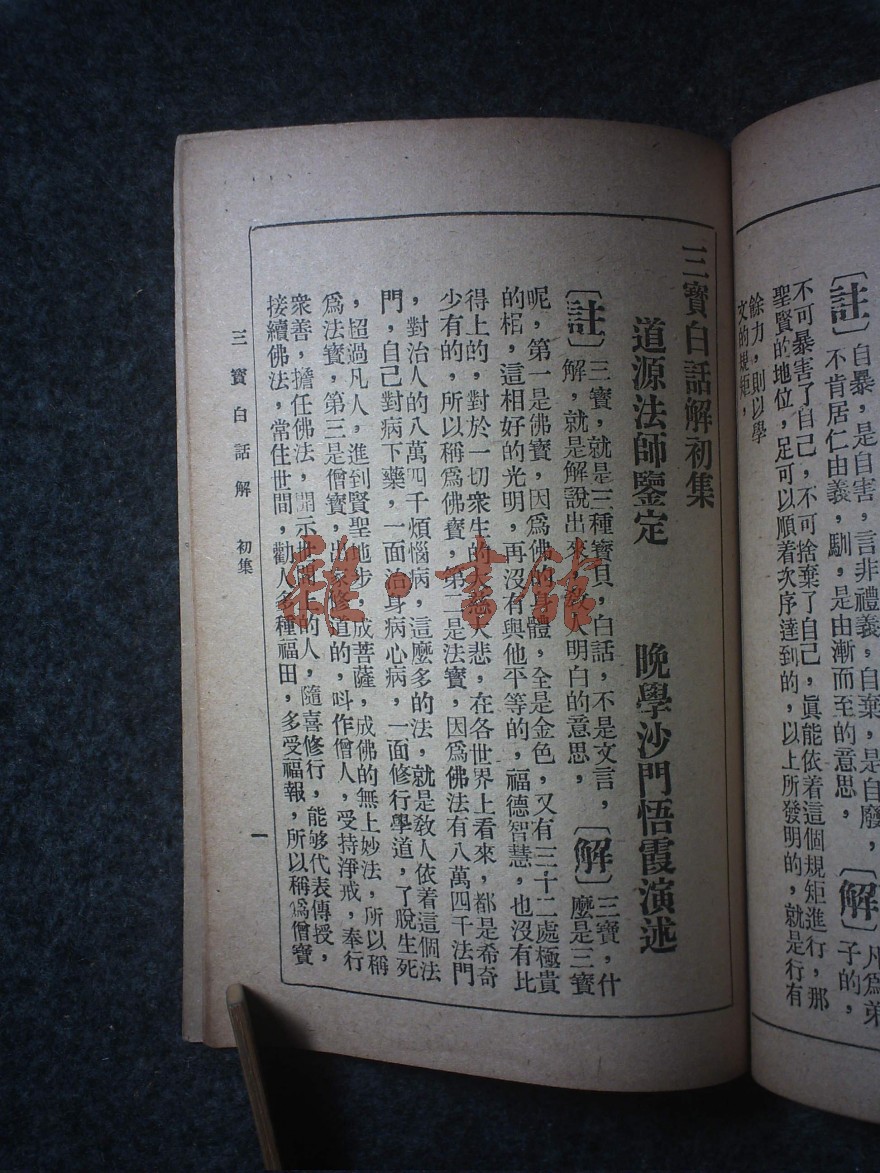 〔註〕
自暴，是自害，言非禮義，自棄，是自廢，
不肯居仁由義，馴，是由漸而至的意思，
〔解〕
凡爲弟
子的，
不可暴害了自己，不可捨棄了自己，眞能依着這個規矩進行，那
聖賢的地位，足可以順着次序達到的，以上所發明的，就是行有
餘力，則以學
文的規矩，
三寶白話解初集
道源法師鑒定　晚學沙門悟霞演述
〔註〕
三寶，就是三種寶貝，白話，不是文言，
解，就是解說出來，敎人明白的意思，
〔解〕
三寶，什
麼是三寶
呢，第一是佛寶，因爲佛的身體，全是金色，又有三十二處極貴
的相，這相好的光明，再沒有與他平等的，福德智慧，也沒有比
得上的，對於一切衆生的大慈大悲，在各世界上看來，都是希奇
少有的，所以稱爲佛寶，第二是法寶，因爲佛法有八萬四千法門
，對治人的八萬四千煩惱病，這麼多的法，就是敎人依着這個法
門，自己對病下藥，一面治身病心病，一面修行學道，了脫生死
，超過凡人，進到賢聖地步，成菩薩，成佛的無上妙法，所以稱
爲法寶，第三是僧寶，出家修道的，呌作僧人，受持淨戒，奉行
衆善，擔任佛法，開示世間上的人，隨喜修行，能够代表傳授，
接續佛法，常住世間，勸人多種福田，多受福報，所以稱爲僧寶
三寶白話解　初集
一
雜·書館